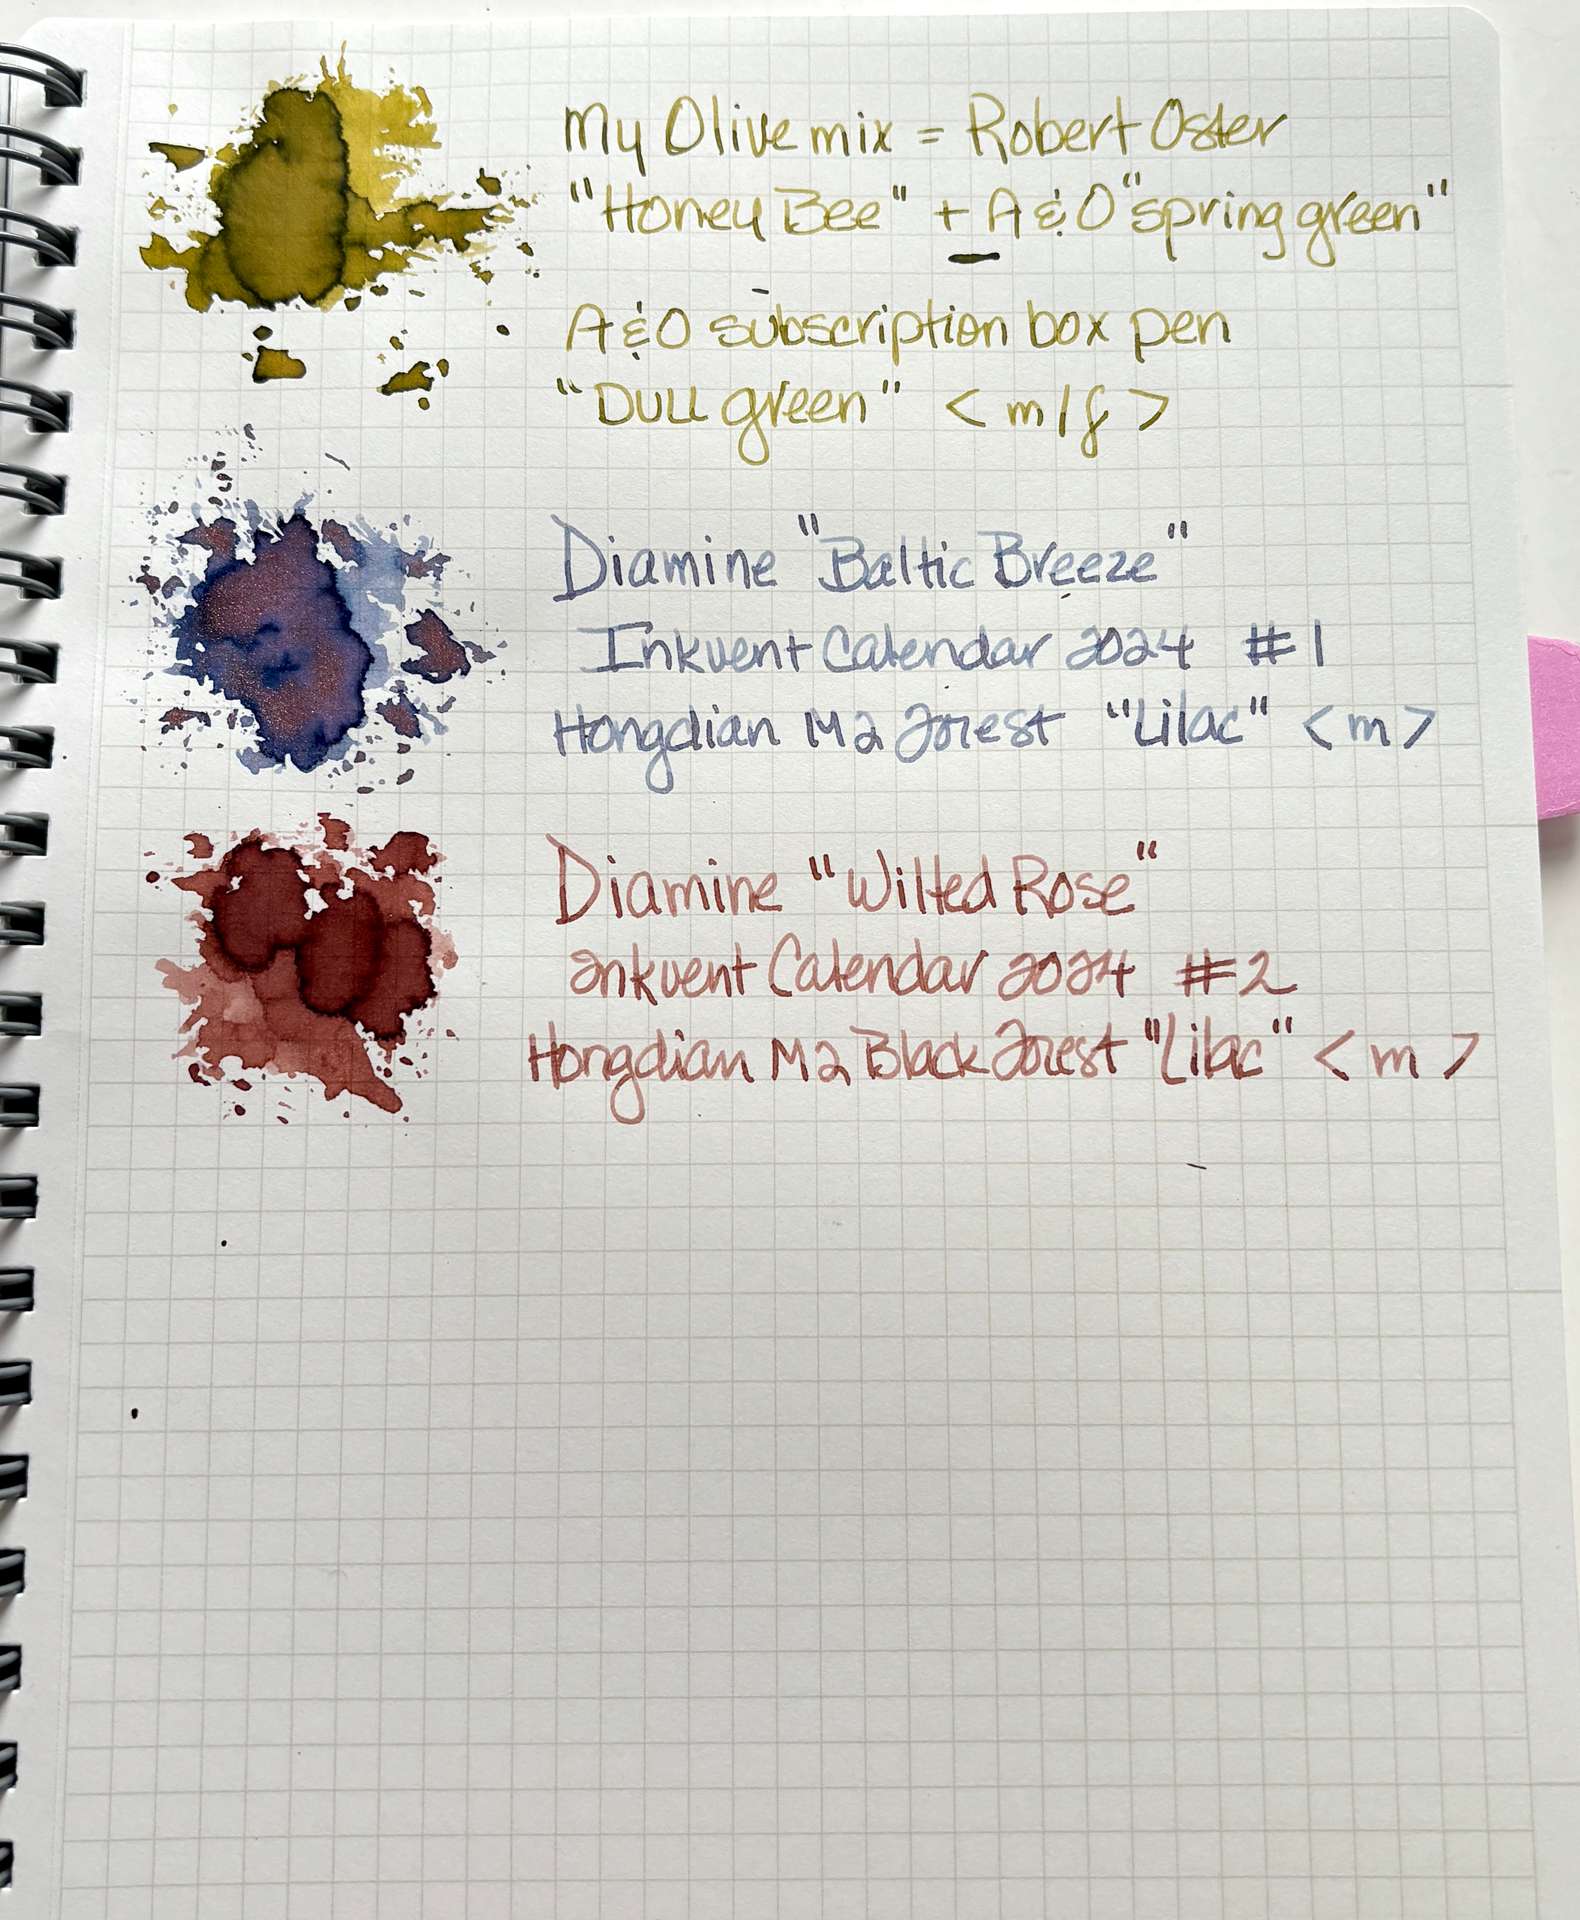 My Olive mix = Robert Oster
"Honey Bee" + A & O "spring green"
A & O subscription box pen
"Dull green" < m/f >
Diamine "Baltic Breeze"
Inkvent Calendar 2024 #1
Hongdian M2 Forest "Lilac" < m >
Diamine "Wilted Rose"
Inkvent Calendar 2024 #2
Hongdian M2 Black Forest "Lilac" < m >